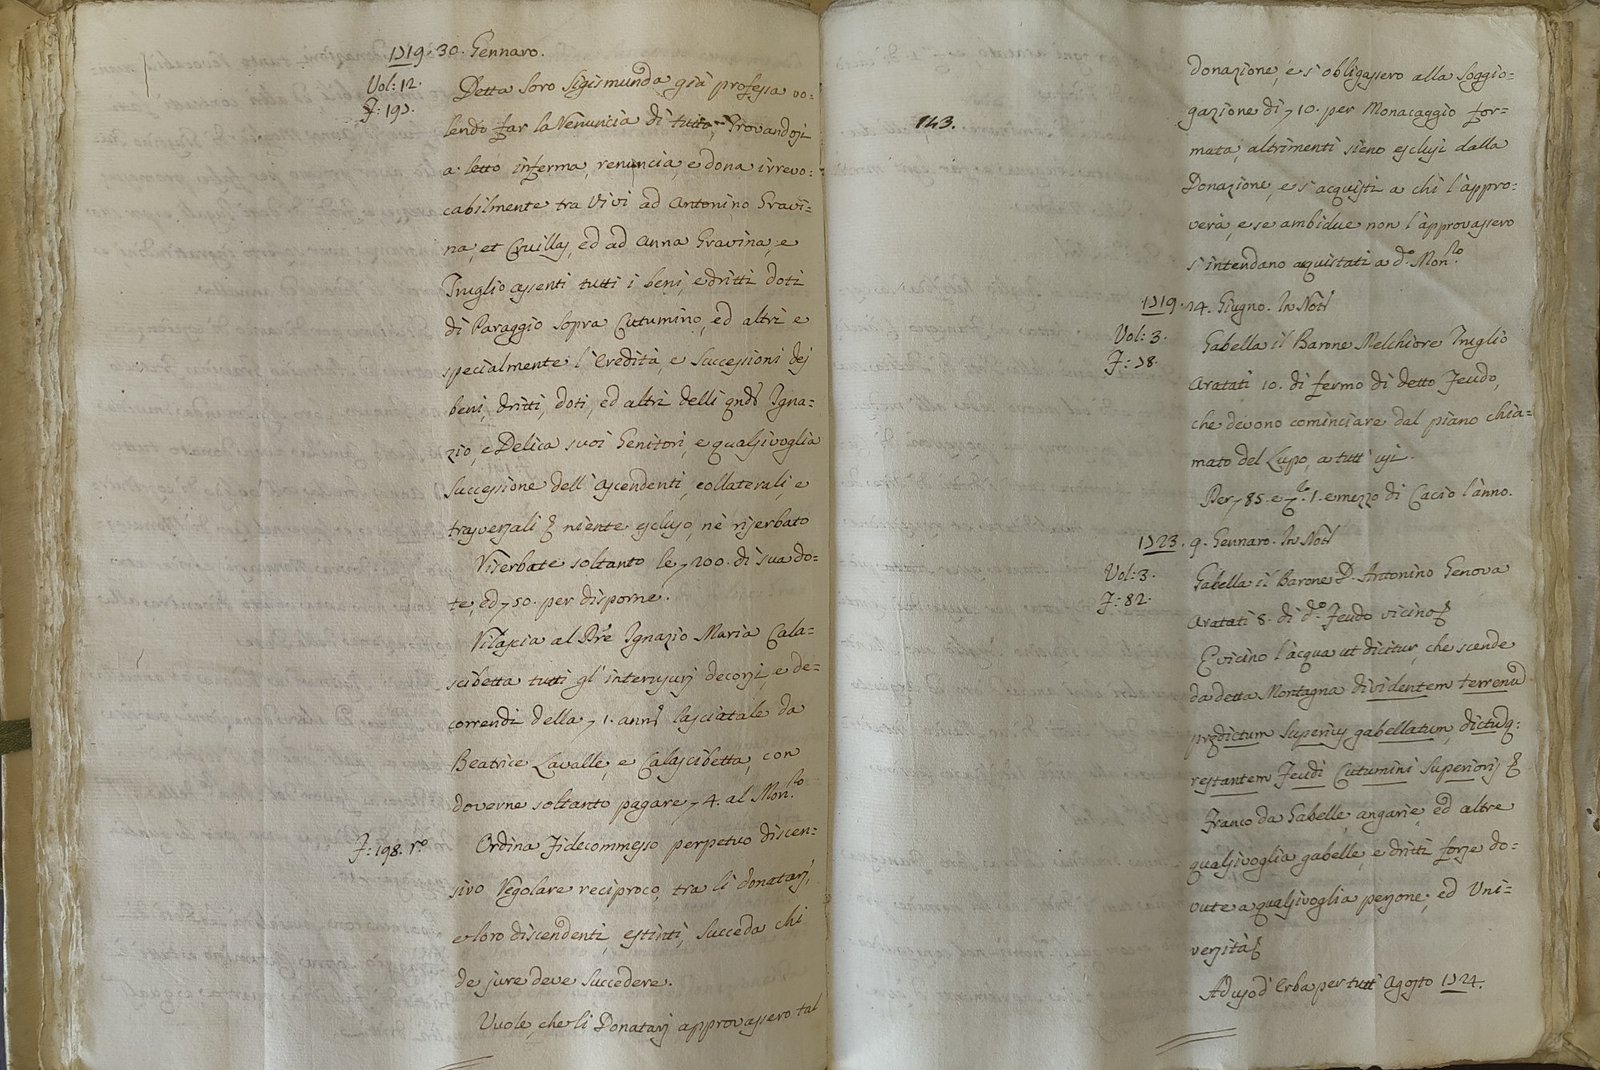 1719. 30. Gennaro.
Vol: 12.
F: 197.
Detta Soro Sigismunda già professa vo:
lendo far la Renuncia di tutto, Trovandosi
a letto inferma, renuncia, e dona irrevo:
cabilmente tra Vivi ad Antonino Gravi=
na, et Cruillas, ed ad Anna Gravina, e
Truglio assenti tutti i beni, e dritti doti
di Paraggio sopra Cutumino, ed altri e
specialmente l'Eredità, e Successioni dei
beni, dritti, doti, ed altri delli qndm Igna=
zio, e Delica suoi Genitori, e qualsivoglia
Successione dell'Ascendenti, collaterali, e
trasversali niente escluso, nè riserbato
Riserbate soltanto le 200. di sua do=
te, ed 50. per disporne.
Rilascia al Pre Ignazio Maria Cala=
scibetta tutti gl'interusurj decorsi, e de=
correndi della 1. anns lasciatale da
Beatrice Lavalle, e Calascibetta, con
doverne soltanto pagare 4. al Monro
F: 198. ro
Ordina Fidecommesso perpetuo discen=
sivo Regolare reciproco, tra li donatarj,
e loro discendenti, estinti, Succeda chi
de jure deve Succedere.
Vuole, che li Donatarj approvassero tal
143.
donazione, e s'obligassero alla Soggio=
gazione di 10. per Monacaggio for=
mata, altrimenti sieno esclusi dalla
Donazione, e s'acquisti a chi l'appro=
verà, e se ambidue non l'approvassero
s'intendano acquistati a do. Monro
1719. 14. Giugno. In Notl
Vol: 3.
F: 78.
Gabella il Barone Melchiore Truglio
Aratati 10. di fermo di detto Feudo,
che devono cominciare dal piano chia=
mato del Lupo, a tutt'usi.
Per 85. e 1. e mezzo di Cacio l'anno.
1723. 9. Gennaro. In Notl
Vol: 3.
F: 82.
Gabella il Barone D. Antonino Genova
Aratati 8. di do. Feudo vicino
E vicino l'acqua ut dicitur, che scende
da detta Montagna dividentem terrenum
predictum Superius gabellatum, dictumq:
restantem Feudi Cutumini Superioris
Franco da Gabelle, angarie, ed altre
qualsivoglia gabelle, e dritti forse do=
vute a qualsivoglia persone, ed Uni=
versità
Ad uso d'Erba per tutt'Agosto 1724.